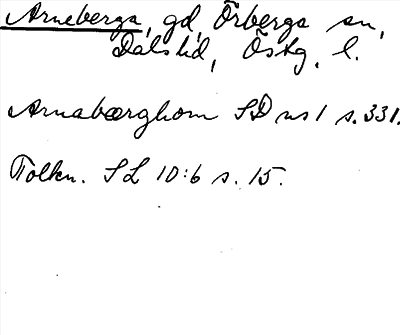 Arneberga, gd, Örberga sn,
Dals hd, Östg. l.
Arnabærghom SD ns 1 s. 331.
Tolkn. SL 10:6 s. 15.